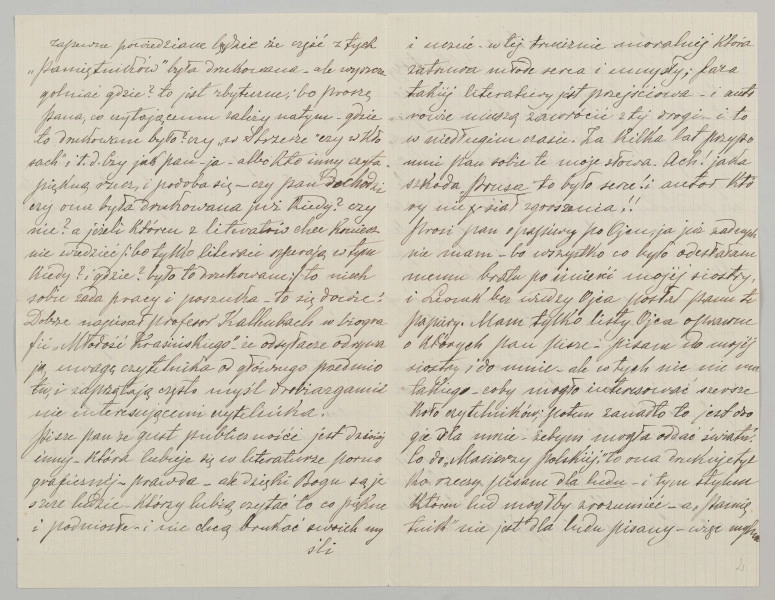 zapewne powiedziane będzie że część z tych
„Pamiętników" była drukowana – ale wyszcze
gólniać gdzie? to jest zbyteczne; bo proszę
pana, co czytającemu zależy na tym – gdzie
to drukowane było? czy „w Strzesze" czy w „Kło
sach" i t. d. czy jak pan – ja – albo kto inny czyta
piękną rzecz, i podoba się – czy pan dochodzi
czy ona była drukowana już kiedy? czy
nie? a jeżeli któren z literatów chce koniecz
nie wiedzieć /: bo tylko literaci szperają w tym
kiedy? i gdzie? było to drukowane:/ to niech
sobie zada pracy i poszuka – to się dowie!
Dobrze napisał profesor Kallenbach w biogra
fii „Młodość Krasińskiego" że odsyłacze odrywa
ją uwagę czytelnika od głównego przedmio
tu, i zaprzątają często myśl drobiazgami
nie interesującemi czytelnika!
Pisze pan że gust publiczności jest dzisiaj
inny – która lubuje się w literaturze porno
graficznej – prawda – ale dzięki Bogu są je
szcze ludzie – którzy lubią czytać to co piękne
i podniosłe – i nie chcą brukać swoich my
śli
i uczuć – w tej truciznie moralnéj która
zatruwa młode serca i umysły; faza
takiéj literatury jest przejściowa – i auto
rowie muszą zawrócić z téj drogi – i to
w niedługim czasie. Za kilka lat przypo
mni pan sobie te moje słowa. Ach! jaka
szkoda Prusa to było serce! i autor któ
ry nie siał zgorszenia!!
Prosi pan o papiery po Ojcu; ja już żadnych
nie mam – bo wszystko co było odesłałam
memu bratu po śmierci mojéj siostry,
i Leonk bez wiedzy Ojca posłał panu te
papiery. Mam tylko listy Ojca oprawne
o których pan pisze – pisane do mojéj
siostry i do mnie – ale w tych nie ma
takiego – coby mogło interesować szersze
koło czytelników; potem zanadto to jest dro
gie dla mnie – żebym mogła oddać światu!
Co do „Macierzy polskiéj", to ona drukuje tyl
ko rzeczy, pisane dla ludu – i tym stylem
któren lud mógłby zrozumieć – a „Pamię
tnik" nie jest dla ludu pisany – więc myślę
2